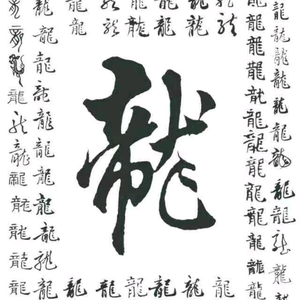 龍龍龍龍龍龍龍龍龍
龍龍龍龍龍龍龍龍龍
龍龍龍龍龍
龍龍龍龍
龍龍龍龍
龍龍龍龍
龍
龍龍龍龍
龍龍龍龍
龍龍龍龍
龍龍龍龍
龍龍龍龍
龍龍龍龍龍龍龍龍龍龍